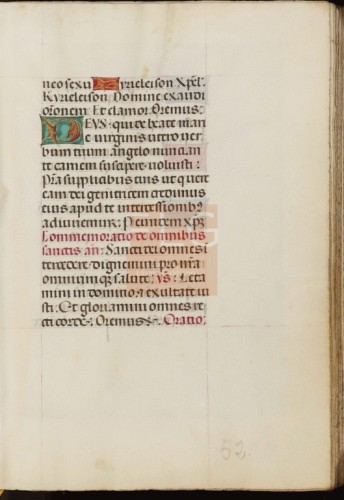 neo sexu Kyrieleison Xpel'.
Kyrieleison. Domine exaudi
orōnem. Et clamor. Oremus:
DEUS: qui de beate mari
e virginis utero ver
bum tuum angelo nuncian
te carnem suscipere voluisti:
Pr̄a supplicibus tuis ut qui ve
eam dei genitricem credimus
eius apud te intercessionib9
adiuvemur: Per eundem xp̄z
Commemoratio de omnibus
sanctis an: Sancti dei omnes i
tercedere dignemini pro nr̄a
omniumq; salute: vs: Leta
mini in domino: et exultate iu
sti. Et gloriamini omnes re
cti corde: Oremus: Oratio:
52.